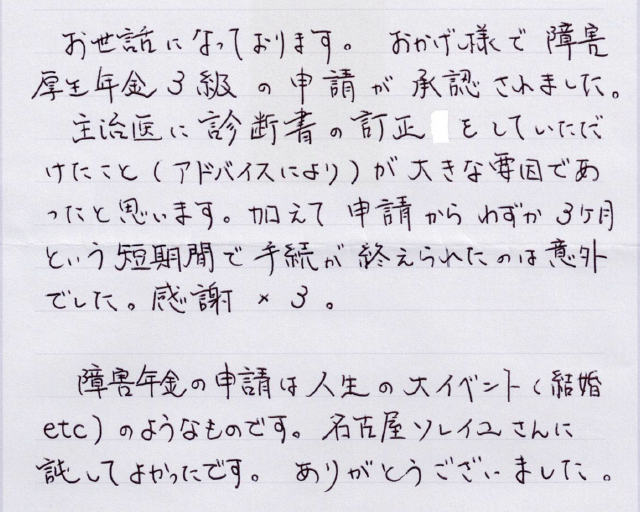 お世話になっております。 おかげ様で 障害
厚生年金 3級 の 申請が 承認 されました。
主治医に 診断書の 訂正 をしていただ
けたこと(アドバイスにより)が 大きな要因であ
ったと思います。加えて 申請から わずか 3ケ月
という短期間で 手続が 終えられたのは 意外
でした。感謝 × 3。
障害年金の申請は人生の大イベント(結婚
etc)のようなものです。名古屋ソレイユさんに
託してよかったです。 ありがとうございました。